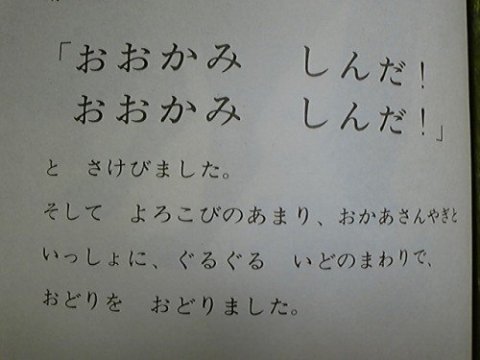 「おおかみ　しんだ！
おおかみ　しんだ！」
と　さけびました。
そして　よろこびのあまり、おかあさんやぎと
いっしょに、ぐるぐる　いどのまわりで、
おどりを　おどりました。